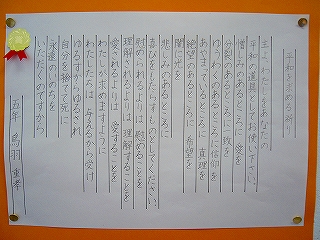 平和を求める祈り
主よ、わたしをあなたの
平和の道具としてお使い下さい。
憎しみのあるところに 愛を
分裂のあるところに 一致を
ゆうわくのあるところに信仰を
あやまっているところに 真理を
絶望のあるところに 希望を
闇に光を
悲しみのあるところに
喜びをもたらすものとしてください。
慰められるよりは 慰めることを
理解されるよりは 理解することを
愛されるよりは 愛することを
わたしが求めますように
わたしたちは 与えるから受け
ゆるすからゆるされ
自分を捨てて死に
永遠のいのちを
いただくのですから
五年 鳥羽